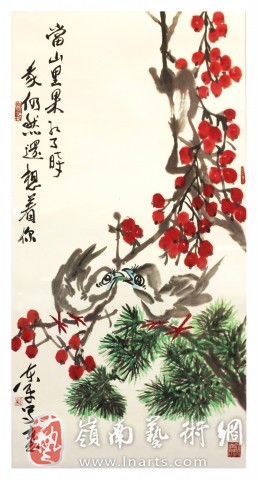 當山里果紅了時
我仍然還想着你
東平写意
藝 嶺南藝術網
www.lnarts.com